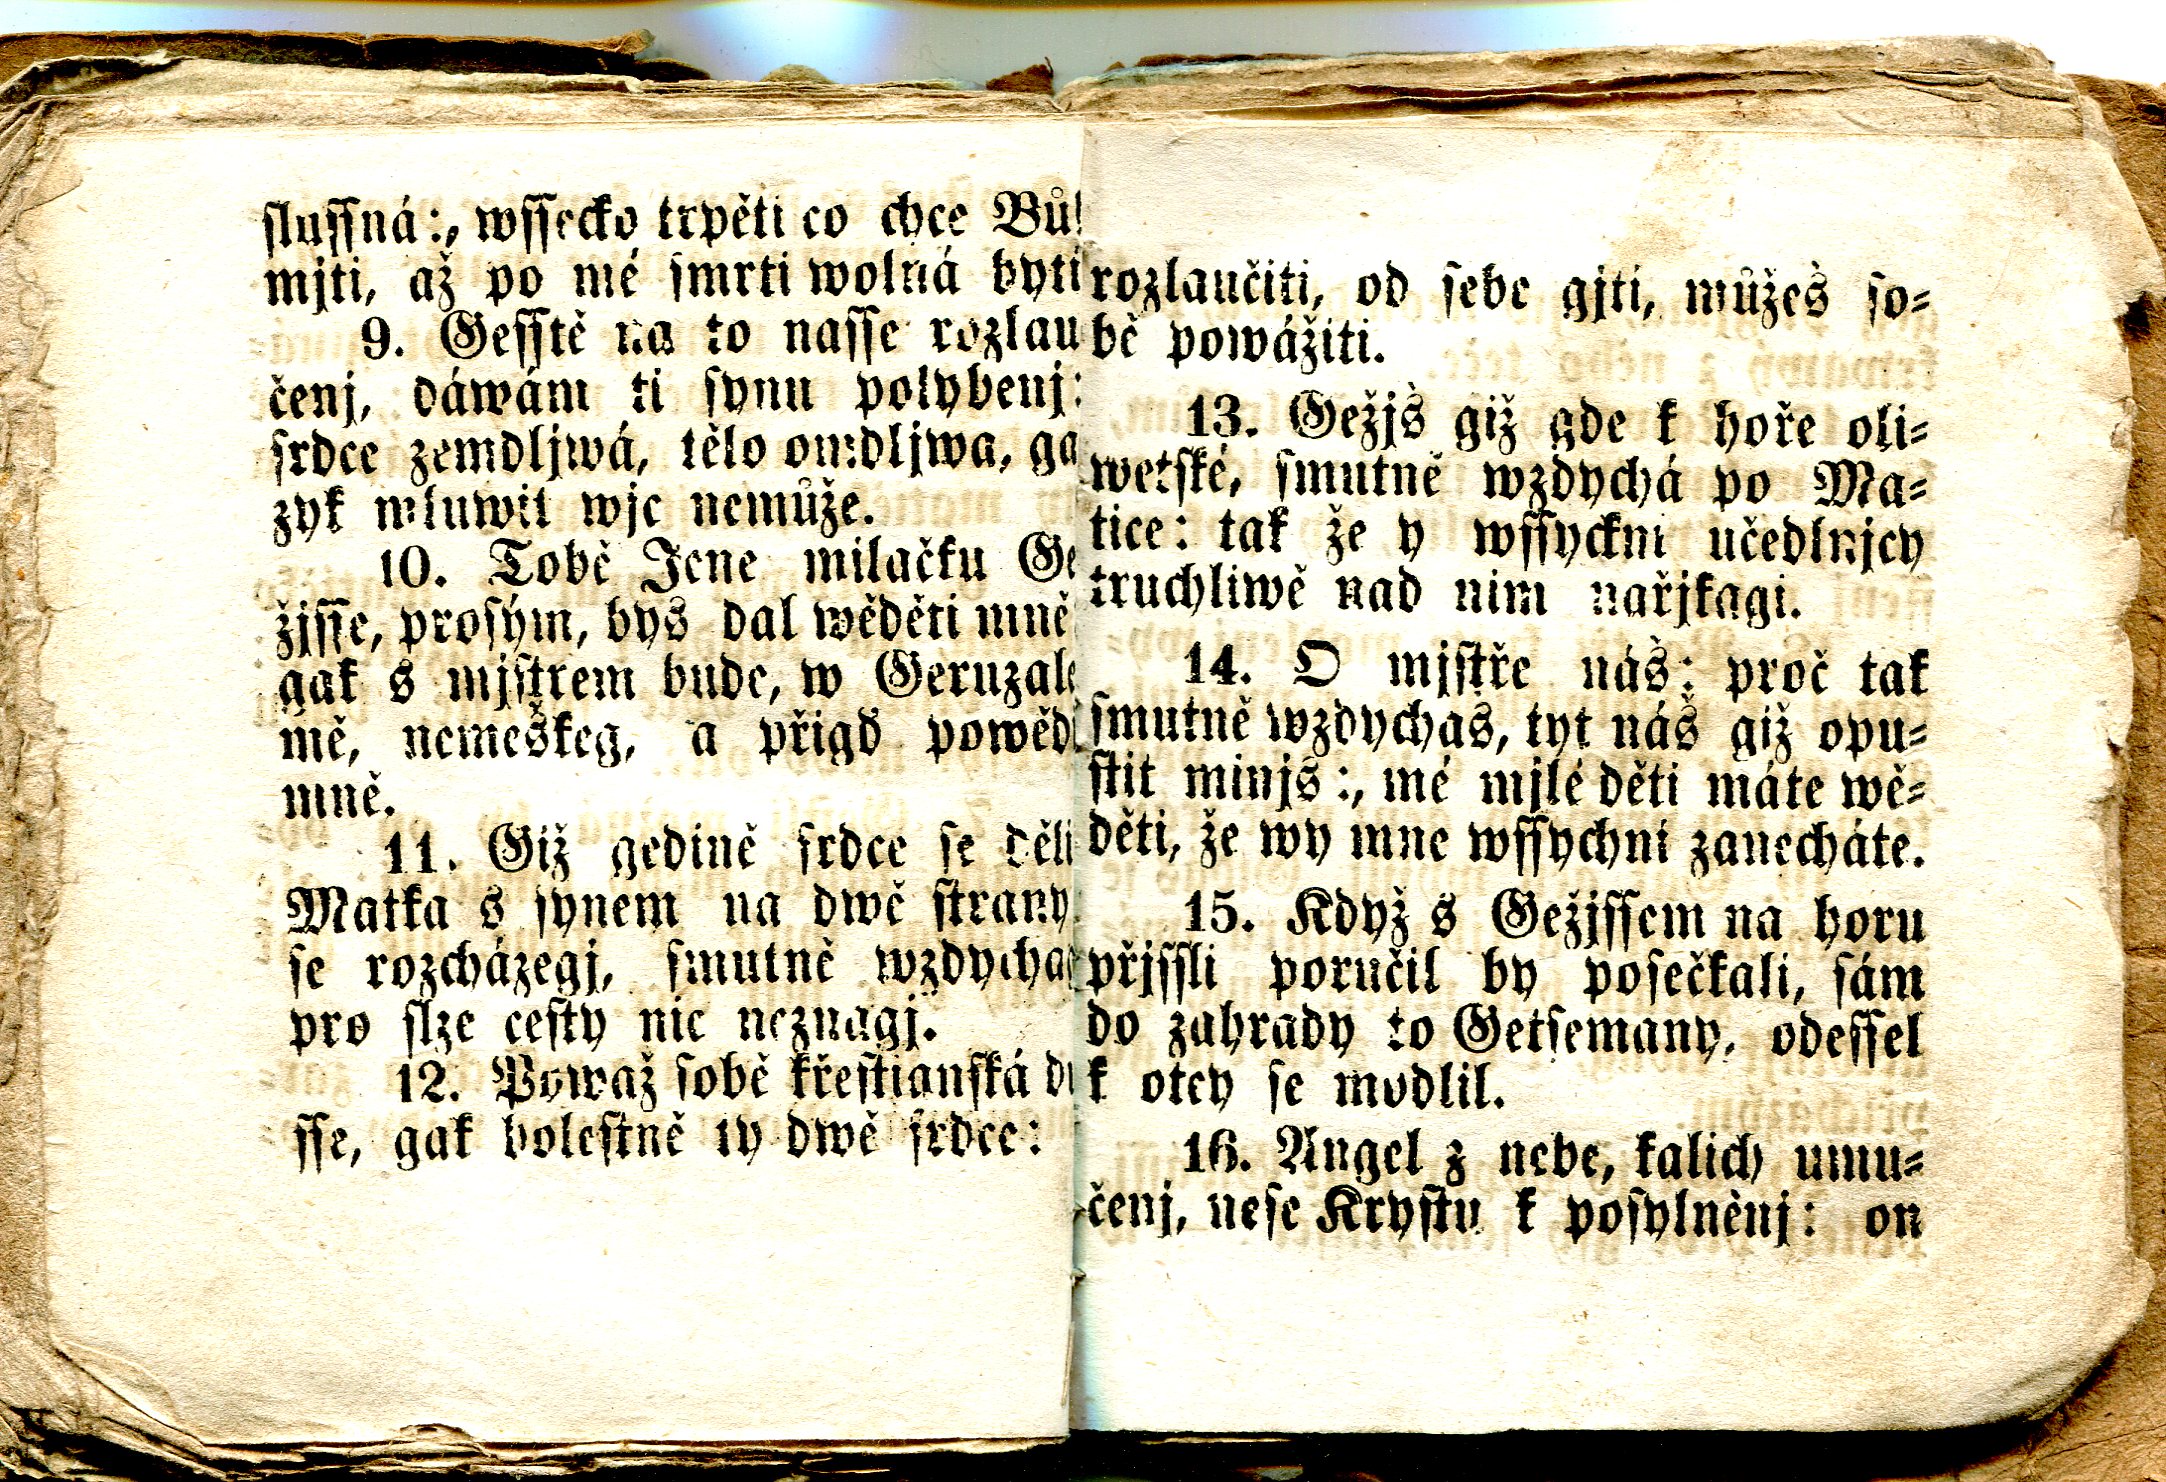 slussná:, wssecko trpěti co chce Bů
mjti, až po mé smrti wolná byti
9. Gesstě na to nasse rozlau
čenj, dáwám ti synu polybenj:
srdce zemdljwá, tělo omdljwa, ga
zyk mluwit wjc nemůže.
10. Tobě Jene milačku Ge
žjsse, prosým, bys dal wěděti mně
gak s mjstrem bude, w Geruzale
mě, nemeškeg, a přigď powěd
mně.
11. Giž gedině srdce se děli
Matka s synem na dwě strany
se rozcházegj, smutně wzdycha
pro slze cesty nic neznagj.
12. Powaž sobě křestianská du
sse, gak bolestně ty dwě srdce:
rozlaučiti, od sebe gjti, můžeš so=
bě powážiti.
13. Gežjš giž gde k hoře oli=
wetské, smutně wzdychá po Ma=
tice: tak že y wssyckni učedlnjcy
truchliwě nad nim nařjkagi.
14. O mjstře náš: proč tak
smutně wzdychaš, tyt náš giž opu=
stit minjš:, mé mjlé děti máte wě=
děti, že wy mne wssychni zanecháte.
15. Když s Gežjssem na horu
přjssli poručil by posečkali, sám
do zahrady to Getsemany, odessel
k otcy se modlil.
16. Angel z nebe, kalich umu=
čenj, nese Krystu k posylněnj: on